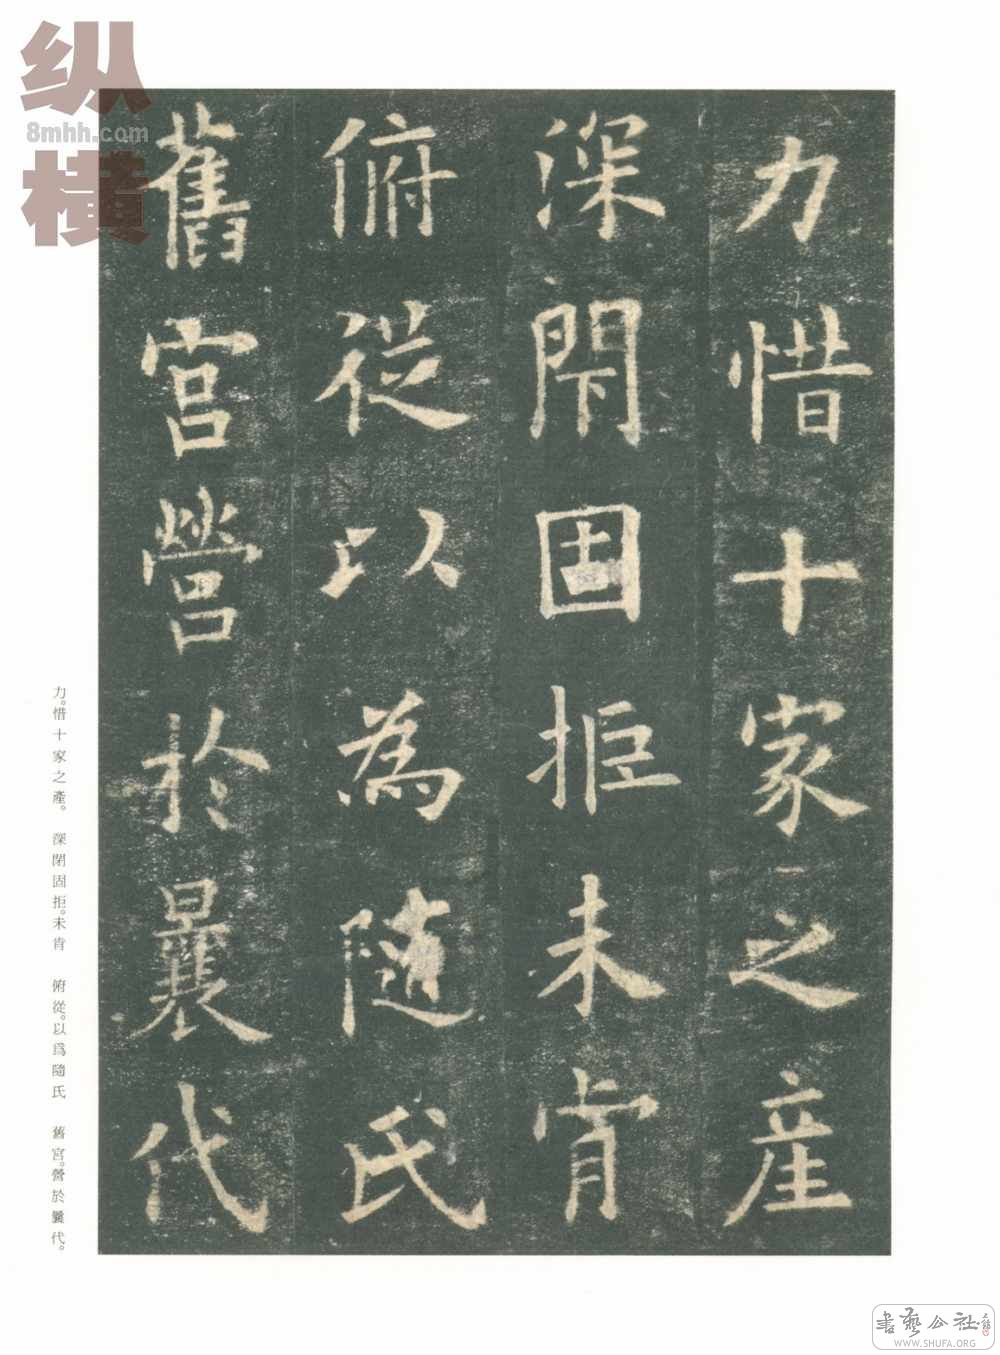 力惜十家之産
深閇固拒未肯
俯從以為隨氏
舊宮營於曩代
力。惜十家之產。 深閉固拒。未肯 俯從。以爲隨氏 舊宮。營於曩代。
纵横
8mhh.com
書藝公社
WWW.SHUFA.ORG